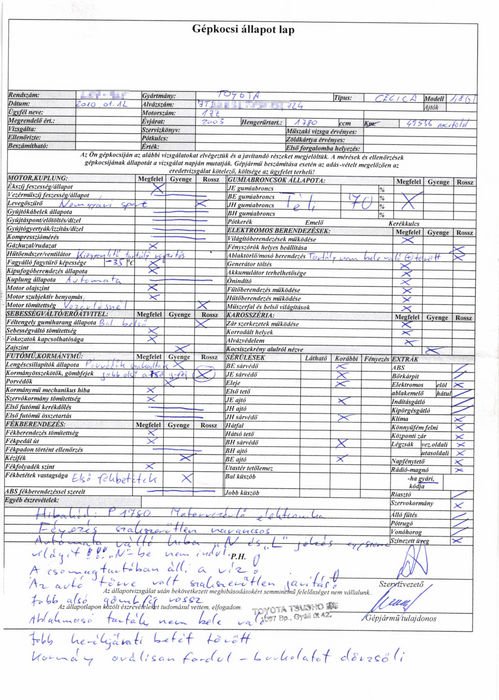 Gépkocsi állapot lap
Rendszám: Gyártmány: TOYOTA Típus: CELICA Modell
Dátum: 2010 01.12 Alvázszám: Ajtók
Ügyfél neve: Motorszám: 1ZZ
Megrendelő ért. Évjárat 2003 Hengerűrtart.: 1780 ccm Km:
Vizsgálta: Szervizkönyv: Műszaki vizsga érvényes:
Ellenőrizte: Pótkulcs: Zöldkártya érvényes:
Beszámítható: Érték: Első forgalomba helyezés:
Az Ön gépkocsiján az alábbi vizsgálatokat elvégeztük és a javítandó részeket megjelöltük. A mérések és ellenőrzések
gépkocsijának állapotát a vizsgálat napján mutatják. Gépjármű beszámítása esetén az adás-vételt megelőzően az
eredetvizsgálat kötelező, költsége az ügyfelet terheli!
MOTOR,KUPLUNG: Megfelel Gyenge Rossz GUMIABRONCSOK ÁLLAPOTA:
Ékszíj feszesség/állapot JE gumiabroncs %
Vezérműszíj feszesség/állapot BE gumiabroncs %
Levegőszűrő Nem gyári sport JH gumiabroncs Téli 70 %
Gyújtókábelek állapota BH gumiabroncs %
Gyújtáspont/előtétés/dízel Pótkerék Emelő Kerékkulcs
Gyújtógyertyák/izzítás/dízel ELEKTROMOS BERENDEZÉSEK: Megfelel Gyenge Rossz
Kompressziómérés Világítóberendezések működése
Gázhuzal/rudazat Fényszórók helyes beállítása
Hűtőrendszer/ventilátor Ablaktörlő/mosó berendezés
Fagyálló fagytűrő képessége -35°C Generátor töltés
Kipufogóberendezés állapota Akkumulátor terhelhetősége
Kuplung állapota Automata Önindító
Motor olajszint Fűtőberendezés működése
Motor szubjektív benyomás Hűtőberendezés működése
Motor tömítettség Vezérlésnél Műszerfal és belső világítások
SEBESSÉGVÁLTÓ/ERŐÁTVITEL: Megfelel Gyenge Rossz KAROSSZÉRIA: Megfelel Gyenge Rossz
Féltengely gumiharang állapota Bal belső Zár szerkezetek működése
Sebességváltó tömítettség Korrodált helyek
Fokozatok kapcsolhatósága Alvázvédelem
Zajszint Kocsiszekrény alulról nézve
FUTÓMŰ,KORMÁNYMŰ: Megfelel Gyenge Rossz SÉRÜLÉSEK Látható Korábbi Fényezés EXTRÁK
Lengéscsillapítók állapota BE sárvédő ABS
Kormányösszekötők, gömbfejek JE sárvédő Bőrkárpit
Porvédők Eleje Elektromos elöl
Kormánymű mechanikus hiba Első tető ablakemelő hátul
Szervokormány tömítettség JE ajtó Indításgátló
Első futómű kerékdőlés JH ajtó Kipörgésgátló
Első futómű összetartás JH sárvédő Klíma
FÉKBERENDEZÉS: Megfelel Gyenge Rossz Hátfal Könnyűfém felni
Fékberendezés tömítettség Hátsó tető Központi zár
Fékpedál út BH sárvédő Légzsák vez.oldali
Fékpadon történt ellenőrzés BH ajtó utasoldali
Kézifék BE ajtó Napfénytető
Fékfolyadék szint Utastér tetőlemez Rádió-magnó
Fékbetétek vastagsága Első fékbetétek Bal küszöb -ha gyári, kódja
ABS fékberendezéssel szerelt Jobb küszöb Riasztó
Egyéb észrevételek: Szervokormány
Hibakód: P 1780 Motorvezérlő elektronika Álló fűtés
Fényezés szakszerűtlen narancsos Pótrugó
Automata váltó hiba N és L jelzés egyszerre Vonóhorog
világít "N"-be nem indul P.H. Színezett üveg
A csomagtartóban áll a víz!
Az autó törve volt szakszerűtlen javítás! Szervizvezető
Az állapotvizsgálat után bekövetkezett meghibásodásokért semminemű felelősséget nem vállalunk.
Jobb alsó gömbfej rossz
Az állapotlapon közölt észrevételeket tudomásul vettem, elfogadom
Ablakmosó tartály nem bele való TOYOTA TSUSHO Gépjármű tulajdonos
Jobb kerékjárati betét törött
Kormány oválisan fordul - burkolatot dörzsöli